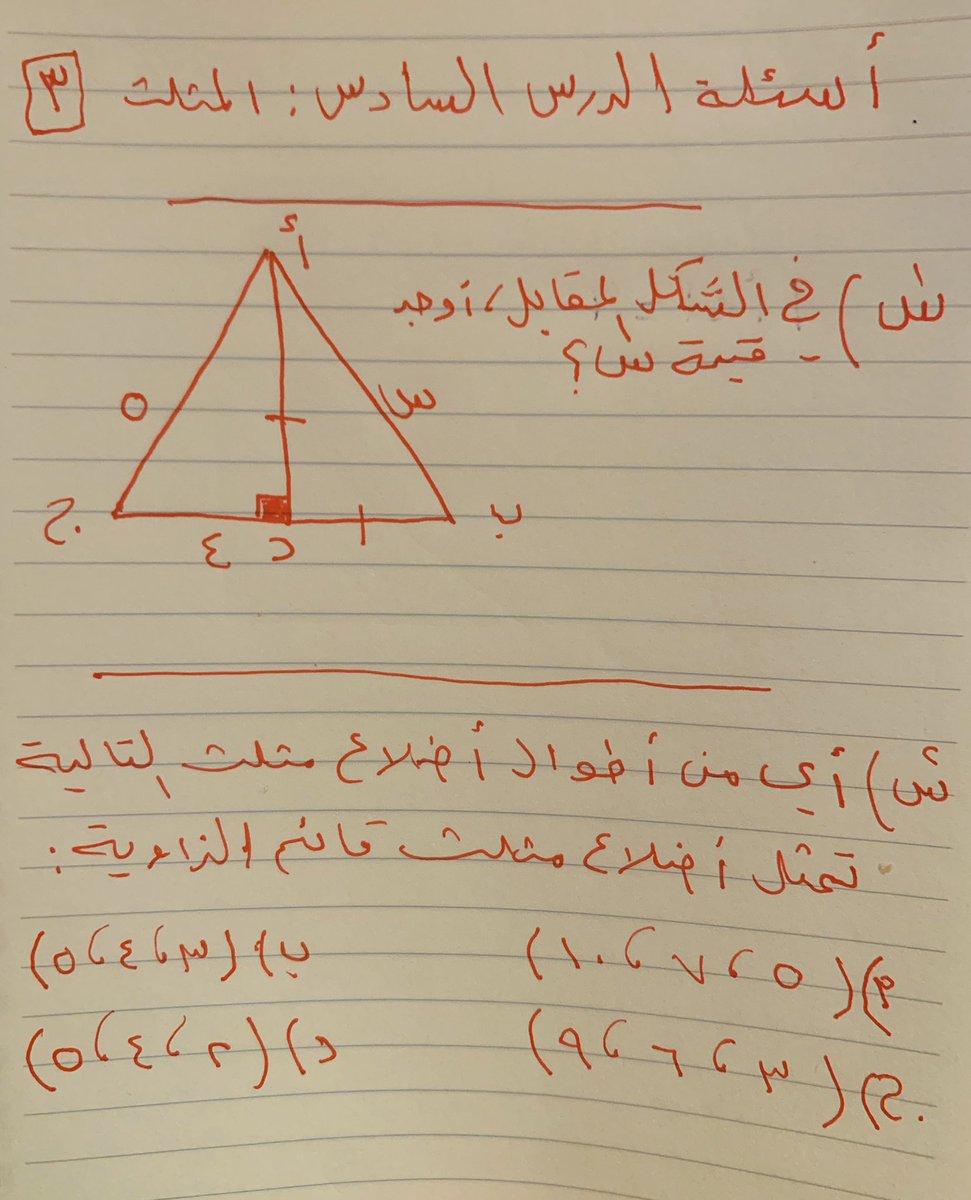 أسئلة الدرس السادس : المثلث ٣
س ) في الشكل المقابل ، أوجد
قيمة س ؟
أ
س
٥
ب
د
٤
ج
س ) أي من أطوال أضلاع مثلث التالية
تمثل أضلاع مثلث قائم الزاوية :
أ) ( ٥ ، ٧ ، ١٠ ) ب) ( ٣ ، ٤ ، ٥ )
ج) ( ٣ ، ٦ ، ٩ ) د) ( ٢ ، ٤ ، ٥ )